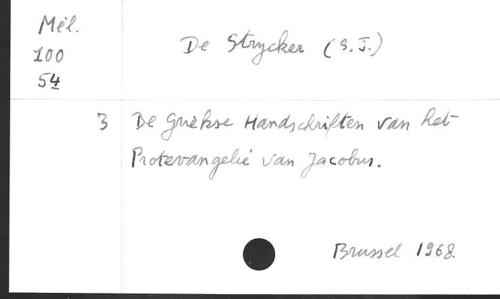 Mél.
100
54
De Strycker (S.J.)
3 De Griekse Handschriften van het
Protevangelie van Jacobus.
Brussel 1968.